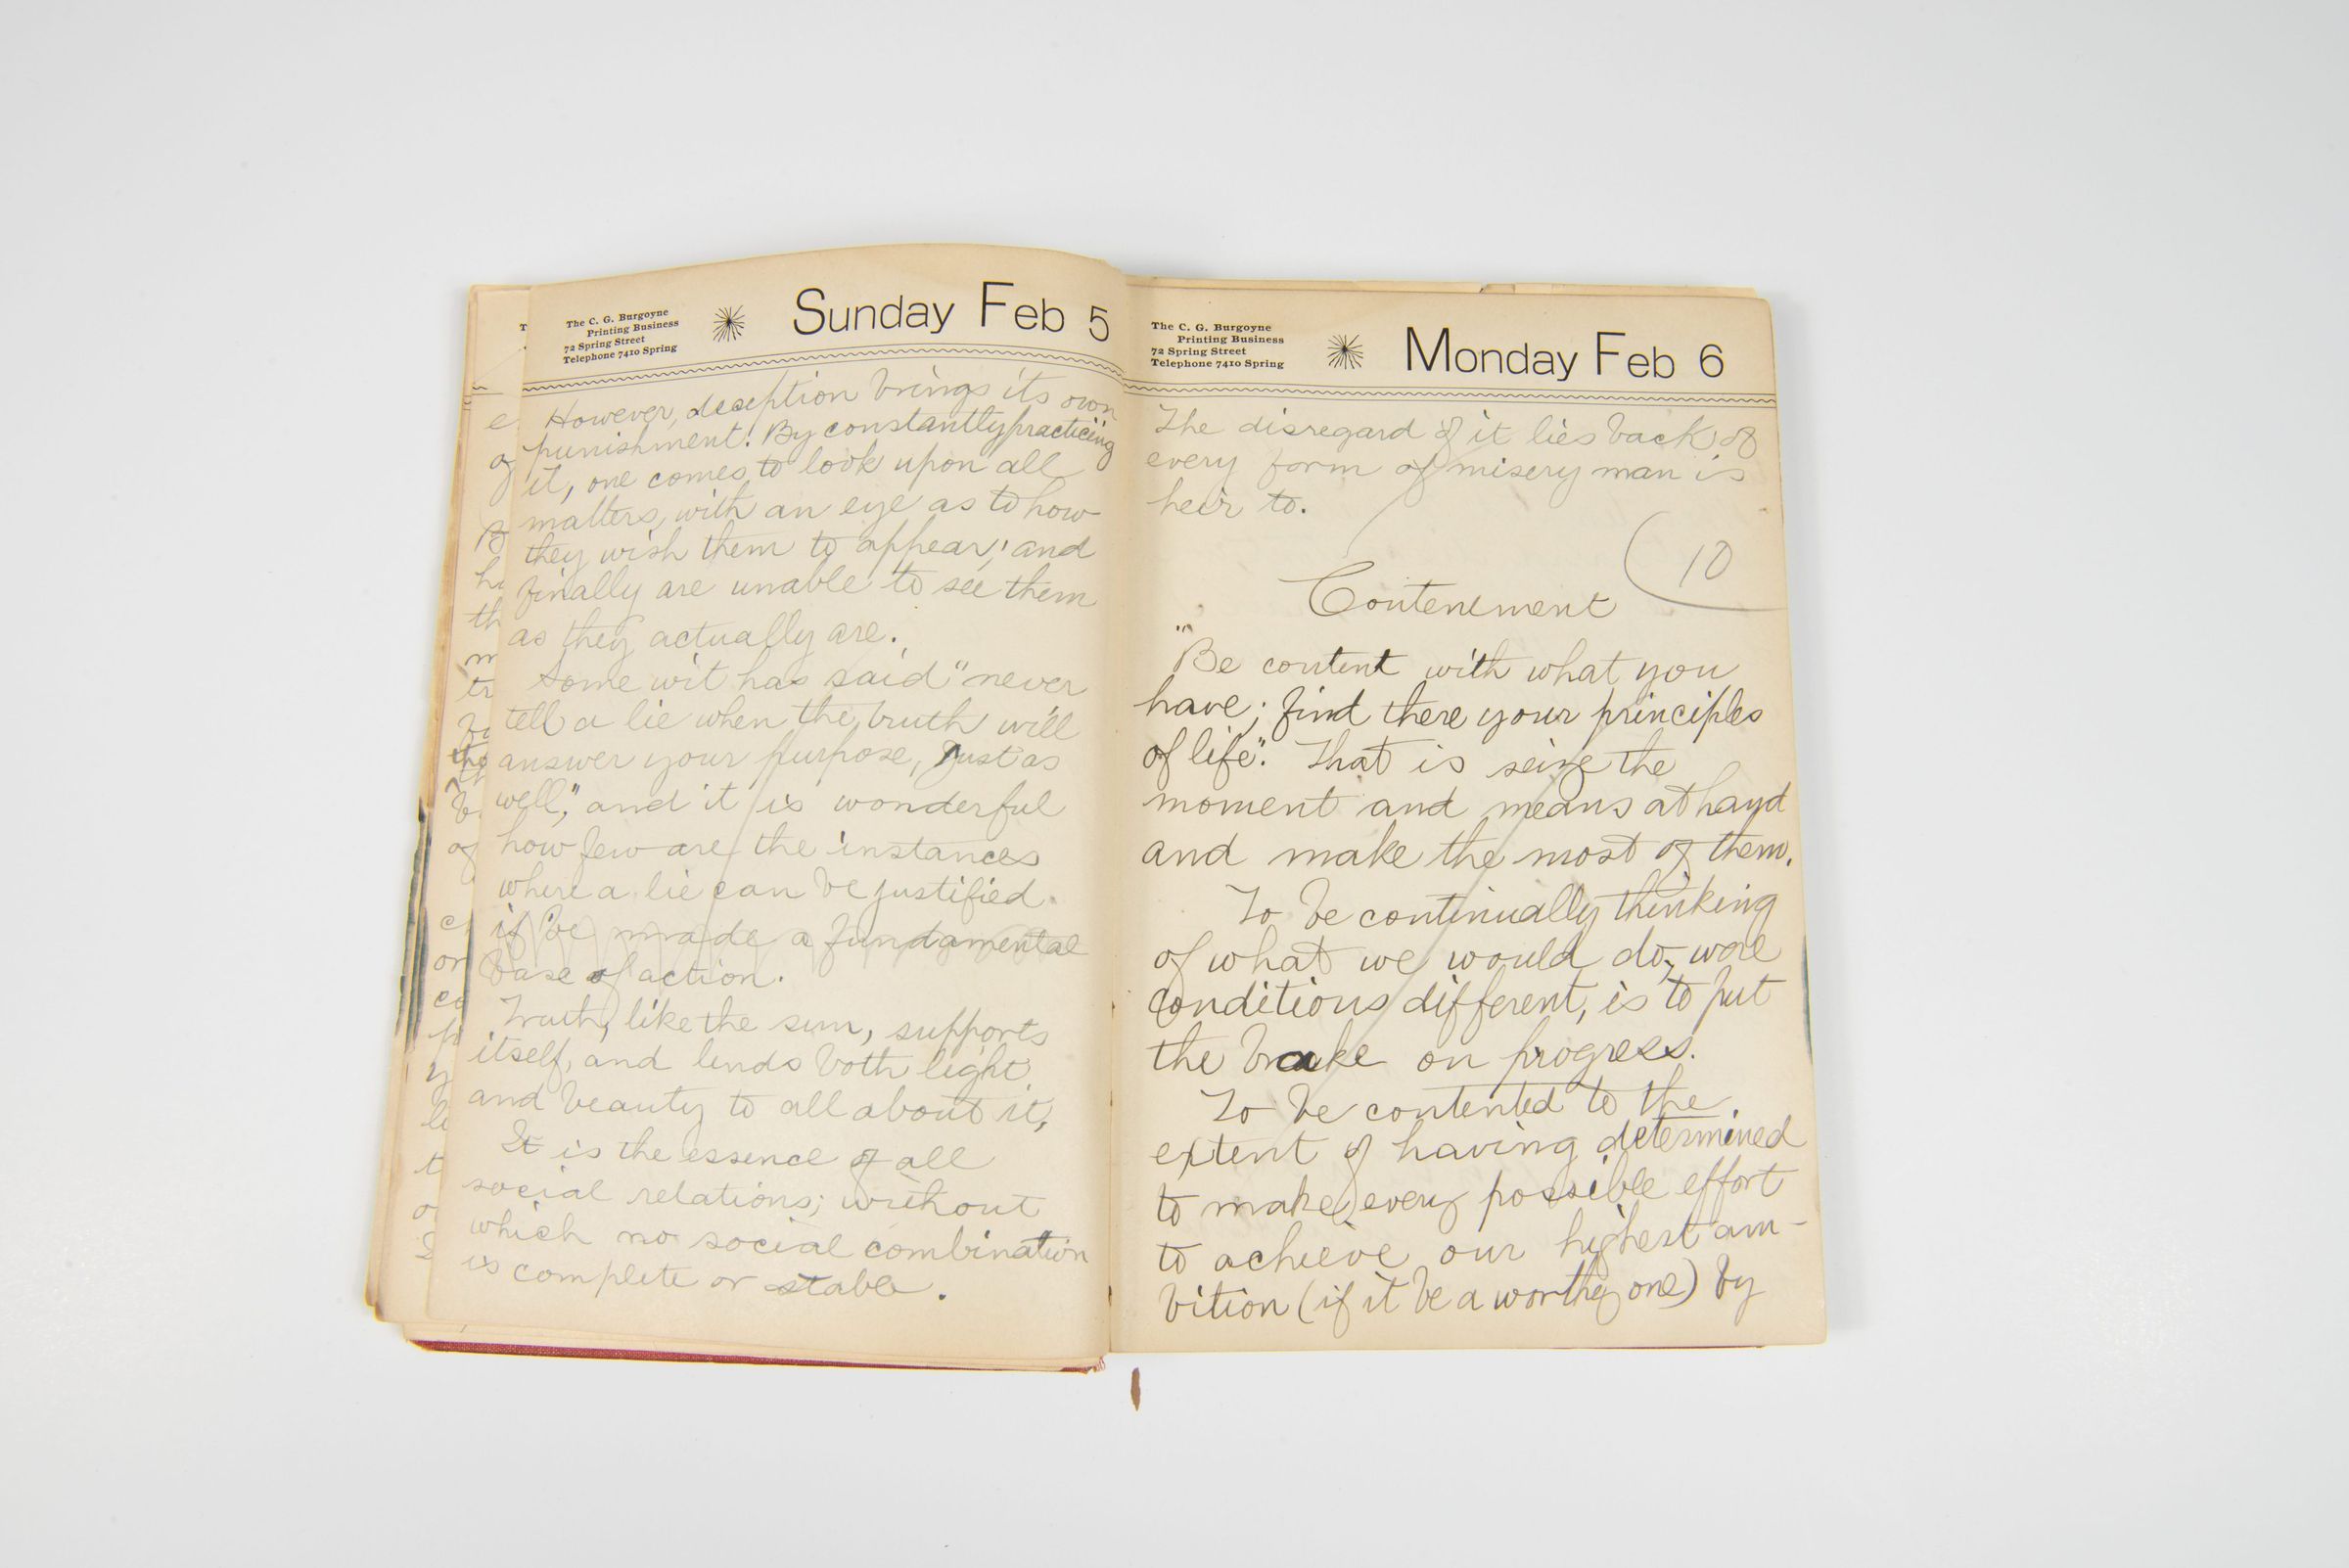 The C. G. Burgoyne
Printing Business
72 Spring Street
Telephone 7410 Spring
Sunday Feb 5
However, deception brings its own
punishment. By constantly practicing
it, one comes to look upon all
matters, with an eye as to how
they wish them to appear; and
finally are unable to see them
as they actually are.
Some wit has said "never
tell a lie when the truth will
answer your purpose, just as
well," and it is wonderful
how few are the instances
where a lie can be justified.
if be made a fundamental
base of action.
Truth, like the sun, supports
itself, and lends both light
and beauty to all about it.
It is the essence of all
social relations; without
which no social combination
is complete or stable.
The C. G. Burgoyne
Printing Business
72 Spring Street
Telephone 7410 Spring
Monday Feb 6
The disregard of it lies back of
every form of misery man is
heir to.
10
Contentment
"Be content with what you
have; find there your principles
of life". That is seize the
moment and means at hand
and make the most of them.
To be continually thinking
of what we would do, were
conditions different, is to put
the brake on progress.
To be contented to the
extent of having determined
to make every possible effort
to achieve our highest am-
bition (if it be a worthy one) by